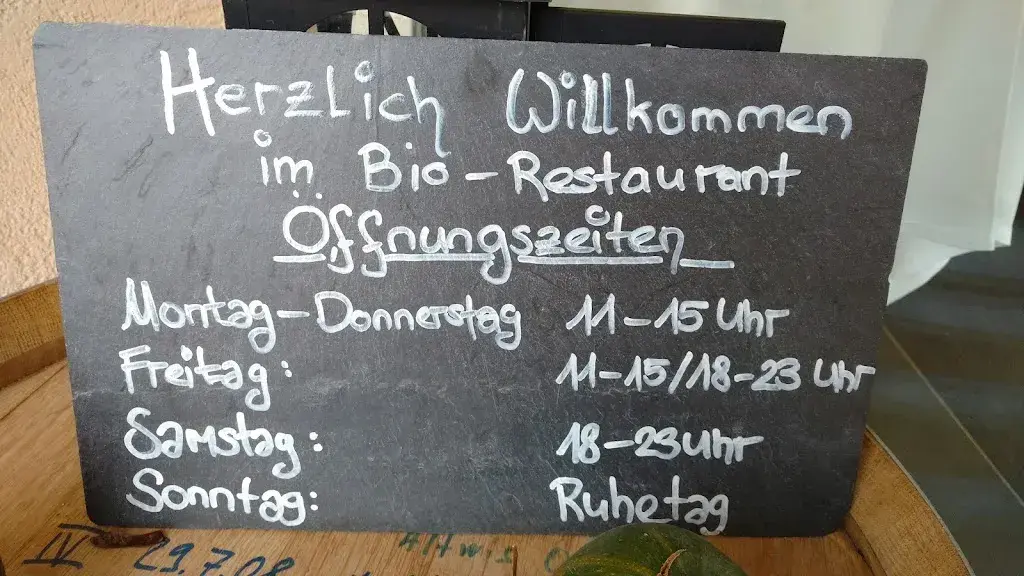 Herzlich Willkommen
im Bio-Restaurant
Öffnungszeiten
Montag-Donnerstag 11-15 Uhr
Freitag: 11-15/18-23 Uhr
Samstag: 18-23 Uhr
Sonntag: Ruhetag
IV 29.7.08